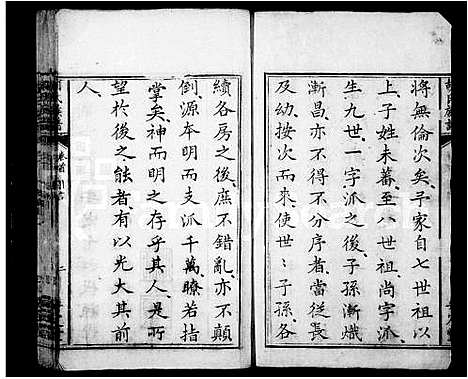 將無倫次矣予家自七世祖以
上子姓未蕃至八世祖尚字派
生九世一字派之後子孫漸熾
漸昌亦不得不分序者當従長
及幼按次而來使世〻子孫各
續各房之後庶不錯亂亦不顛
倒源本明而支派千萬瞭若指
掌矣神而明之存乎其人是所
望於後之能者有以光大其前
人